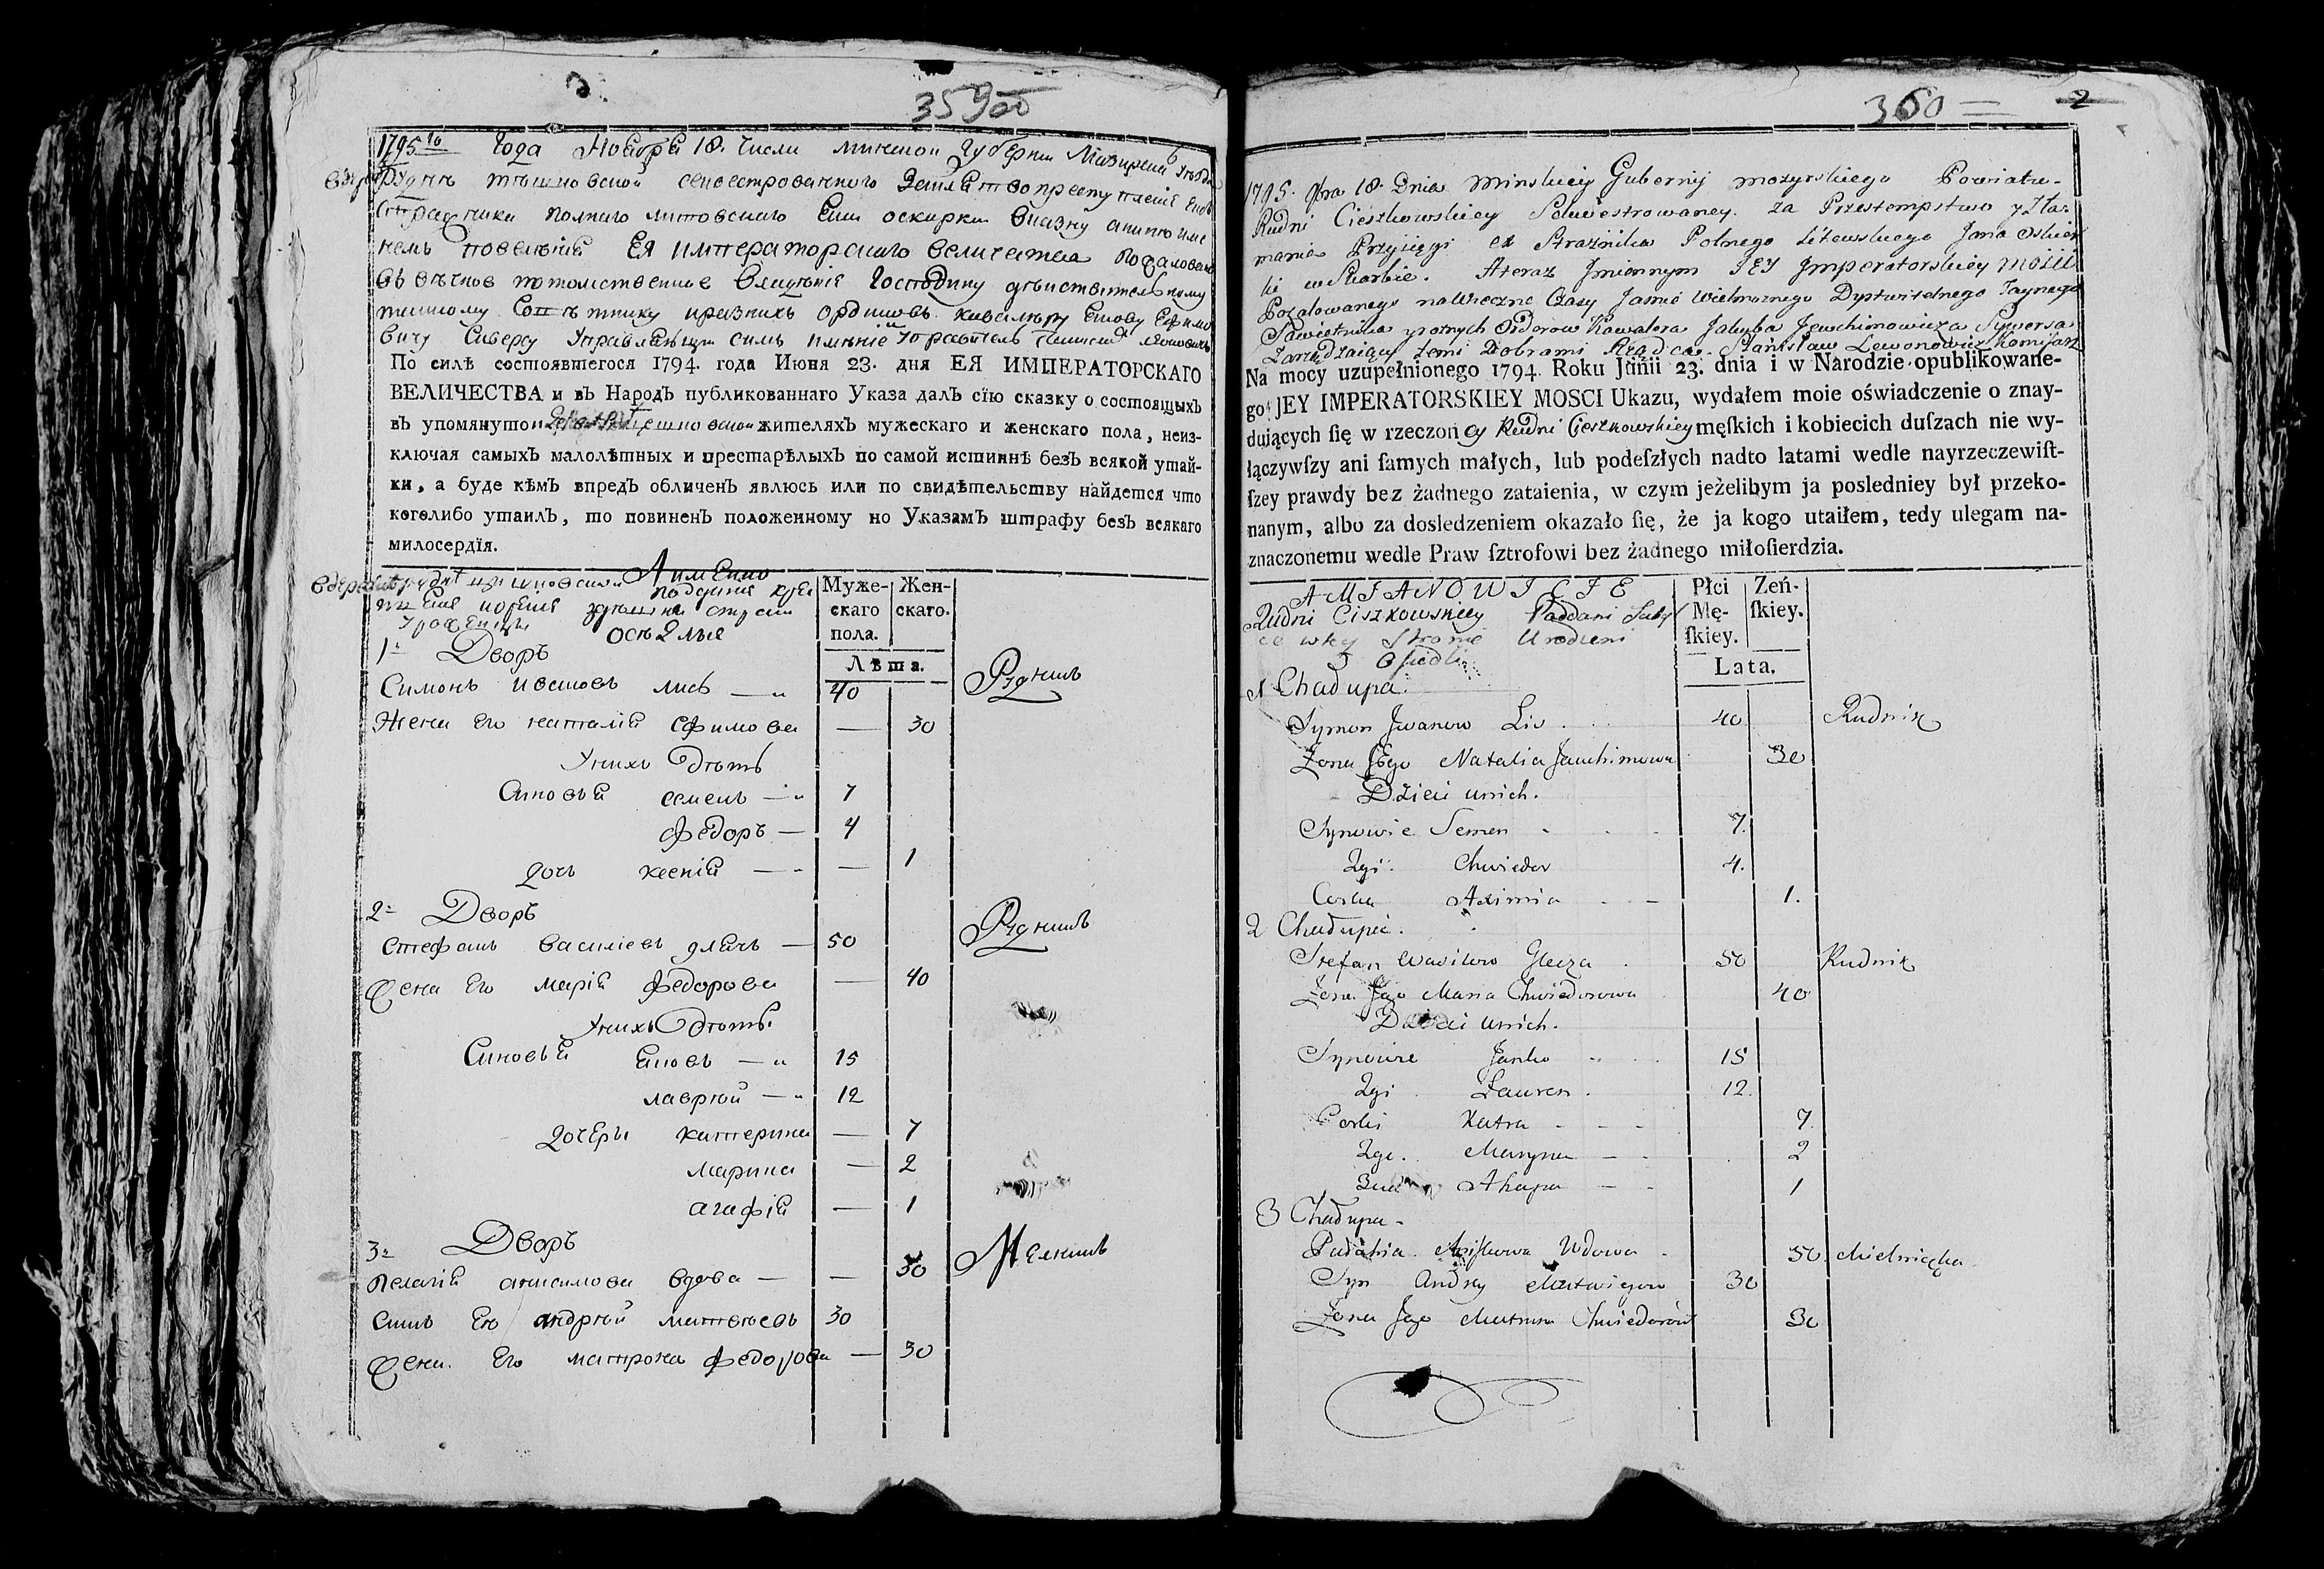 3590б
1795го Года Ноября 18. Числа минской Губернии Мозирскаго
Рудни тешковской секвестрованного
Стражника полнаго литовскаго Яна оскирки вказну а ныне име
немъ повелѣнія Ея императорскаго величества Пожалован
въ вѣчное потомственное владѣнія Господину дѣиствителному
тайному Совѣтнику и разнихъ ординовъ кавалѣру Якову Ефимо
вичу Сиверсу Управляющи симъ имѣніе
По силѣ состоявшегося 1794. года Июня 23. дня ЕЯ ИМПЕРАТОРСКАГО
ВЕЛИЧЕСТВА и въ Народъ публикованнаго Указа далъ сїю сказку о состоящыхъ
въ упомянутои жителяхъ мужескаго и женскаго пола, неиз-
ключая самыхъ малолѣтныхъ и престарѣлыхъ по самой истиннѣ безъ всякой утай-
ки, а буде кѣмъ впредъ обличенъ явлюсь или по свидѣтельству найдется что
коголибо утаилъ, то повиненъ положенному по Указамъ штрафу безъ всякаго
милосердїя.
А имЕнно
Муже-
скаго
пола.
Жен-
скаго.
осѣдлые
Лѣта.
1 Дворъ
Симонъ ивановъ лисъ — 40 Рудникъ
Жена Его наталия Ефимова — 30
Унихъ Дѣтѣ
Синовья семенъ — 7
федоръ — 4
дочъ ксения — 1
2 Дворъ
Стефанъ василиевъ — 50 Рудникъ
Жена Его мария федорова — 40
Унихъ Дѣтѣ
Синовья Яковъ — 15
лаврѣй — 12
дочеры катерина — 7
марина — 2
агафия — 1
3 Дворъ
пелагия анисимова вдова — 50 Мелникъ
Синъ Его андрѣй матвѣевъ 30
Жена Его матрона федорова — 30
360 2
1795. 9bra 18. Dnia Minskiey Gubernij mozyrskiego Powiatu.
Rudni Cieszkowskiey Sekwestrowaney. za Przestempstwo y Zła-
manie Przysięgi ex Straznika Polnego Litewskiego Jana Oskier
ki w Skarbie. Ateraz Jmiennym JEY Jmperatorskiey MOSCI
Pozalowanego na Wieczne Czasy Jasnie Wielmoznego Dystwitelnego Taynego
Sowietnika y roznych Orderow Kawalera Jakuba Jewchimowicza Sywersa
Zarządzaiący temi Dobrami Rządca. Stanisław Lewonowicz Komisarz
Na mocy uzupełnionego 1794. Roku Junii 23. dnia i w Narodzie opublikowane-
go JEY IMPERATORSKIEY MOSCI Ukazu, wydałem moie oświadczenie o znay-
dujących ſię w rzeczoney Rudni Cieszkowskiey męſkich i kobiecich duſzach nie wy-
łączywſzy ani ſamych małych, lub podeſzłych nadto latami wedle nayrzeczewiſt-
ſzey prawdy bez żadnego zataienia, w czym jeżelibym ja posledniey był przeko-
nanym, albo za dosledzeniem okazało ſię, że ja kogo utaiłem, tedy ulegam na-
znaczonemu wedle Praw ſztrofowi bez żadnego miłoſierdzia.
AMIANOWICIE
Płci
Mę-
ſkiey.
Zeń-
ſkiey.
Rudni Ciszkowskiey Paddani
Stronie Urodzeni
y Osiedli
Lata.
1 Chadupa.
Symon Jwanow Lis 40 Rudnik
Zona Jego Natalia Jauchimowa 30
Dzieci unich.
Synowie Semen 7.
2gi. Chwiedor 4.
Corka Aximia 1.
2 Chadupa.
Stefan Wasilow 50 Rudnik
Zona Jego Maria Chwiedorowa 40
Dzieci unich.
Synowie Janko 15
2gi Lauren. 12.
Corki Katra 7.
2ga. Maryna 2
3cia Ahapa 1
3 Chadupa
Anisimowa Wdowa 50 Mielniczka
Syn Andrey Matwiejow 30
Zona Jego Matruna Chwiedorow 30